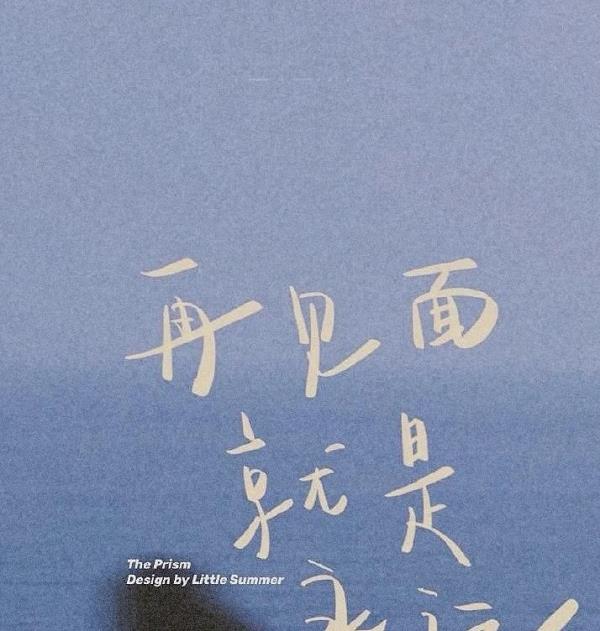 再见面
就是
The Prism
Design by Little Summer